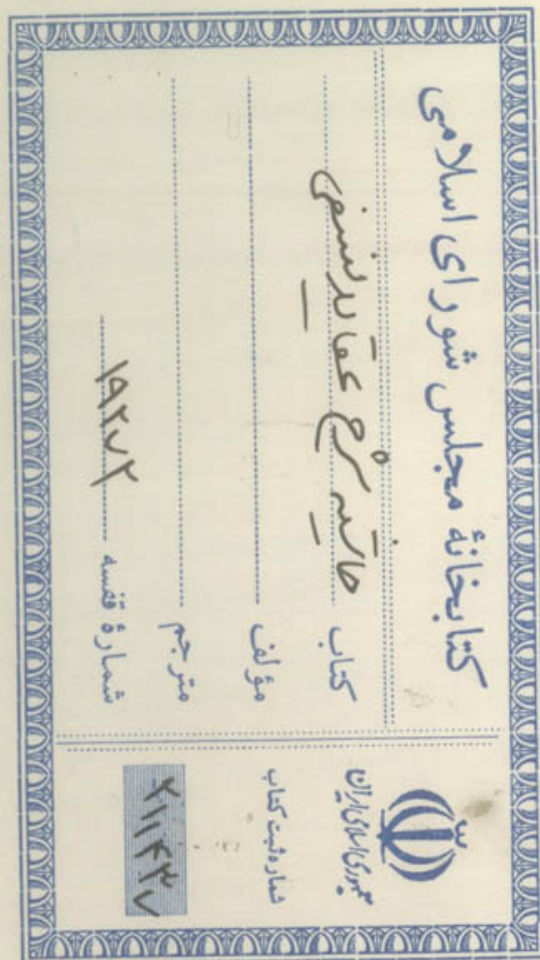 کتابخانهٔ مجلس شورای اسلامی
کتاب حاشیه شرح عقاید نسفی
مؤلف
مترجم
شمارهٔ قفسه ۱۹۲۷۲
جمهوری اسلامی ایران
شماره ثبت کتاب
۲۱۱۴۳۷